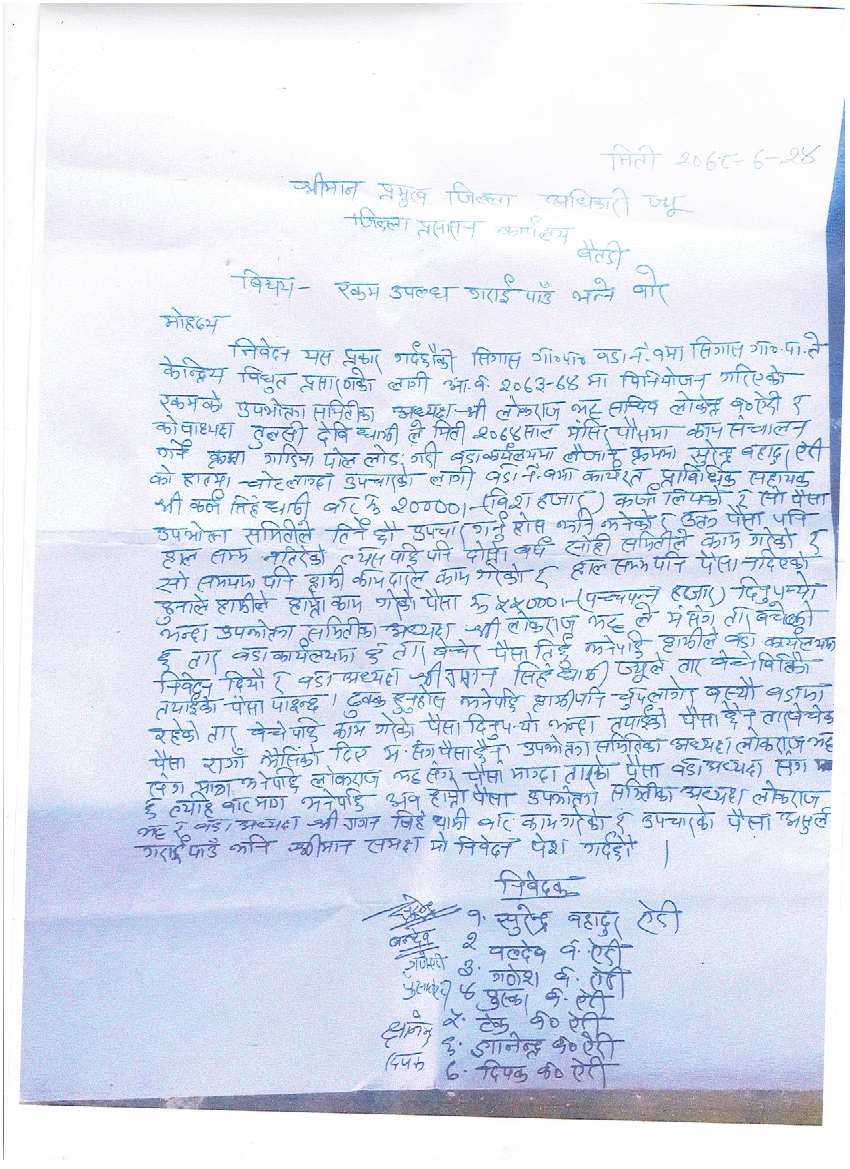 मिती २०६८-६-२४
श्रीमान प्रमुख जिल्ला अधिकारी ज्यू
जिल्ला प्रसासन कार्यलय
बैतडी
बिषय- रकम उपलब्ध गराई पाउँ भन्ने बारे
मोहदय
निवेदन यस प्रकार गर्दछौकी सिगास गा०पा० वडा नं. ९मा सिगास गा०.पा.ले
केन्द्रिय बिधुत प्रसारणको लागी आ.व. २०६३-६४ मा विनियोजन गरिएको
रकमको उपभोक्ता समितीका अध्यक्ष श्री लोकराज भट्ट सचिव लोकेन्द्र ब०ऐडी र
कोषाध्यक्ष तुलसी देवि धामी ले मिती २०६४साल मंसिर पौसमा काम संचालन
गर्ने क्रममा गाडिमा पोल लोड गरी वडा कार्यलयमा लैजाने क्रममा सुरेन्द्र बहादुर ऐडी
को हातमा चोट लाग्दा उपचारको लागी वडा नं. ९मा कार्यरत प्राविधिक सहायक
श्री कर्ण सिहं धामी बाट रु २००००।-(बिश हजार) कर्जा लिएको र सो पैसा
उपभोक्ता समितीले तिर्ने छौ उपचार गर्नु होस भनि भनेको र उक्त पैसा पनि
हाल सम्म नतिरेको त्यस पछि पनि दोस्रो बर्ष सोही समितीले काम गरेको र
सो समयमा पनि हामी कामदारले काम गरेको र हाल सम्म पनि पैसा नदिएको
हुनाले हामीले हाम्रो काम गरेको पैसा रु ५५०००।-(पच्चपन्न हजार) दिनुपर्‍यो
भन्दा उपभोक्ता समितीका अध्यक्ष श्री लोकराज भट्ट ले मं संग तार बचेको
छ तार वडा कार्यलयमा छ तार बेच्चेर पैसा तिर्छु भनेपछि हामीले वडा कार्यलयमा
निवेदन दियौ र वडा अध्यक्ष श्री गगन सिहं धामी ज्यूले तार बेच्ने बित्तिकै
तपाईको पैसा पाइन्छ। ढुक्क हुनुहोस भनेपछि हामीपनि चुपलागेर बस्यौ वडामा
रहेको तार बेच्चेपछि काम गरेको पैसा दिनुपर्‍यो भन्दा तपाईको पैसा छैन तारबेचेको
पैसा रागाँ भैसिको दिए म संग पैसा छैन। उपभोक्ता समितिका अध्यक्ष लोकराज भट्ट
संग माग भनेपछि लोकराज भट्ट संग पैसा माग्दा तारको पैसा वडा अध्यक्ष संग
छ त्याहि बाट माग भनेपछि अब हाम्रो पैसा उपभोक्ता समितीका अध्यक्ष लोकराज
भट्ट र वडा अध्यक्ष श्री गगन सिहं धामी बाट काम गरेको र उपचारको पैसा असुल
गराई पाउँ भनि श्रीमान समक्ष यो निवेदन पेश गर्दछौ।
निवेदक
१. सुरेन्द्र बहादुर ऐडी
बल्देव २. बलदेव ब. ऐडी
३. गणेश ब. ऐडी
४. पुस्कर ब. ऐडी
५. टेक ब० ऐडी
ज्ञानेन्द्र ६. ज्ञानेन्द्र ब० ऐडी
दिपक ७. दिपक ब० ऐडी